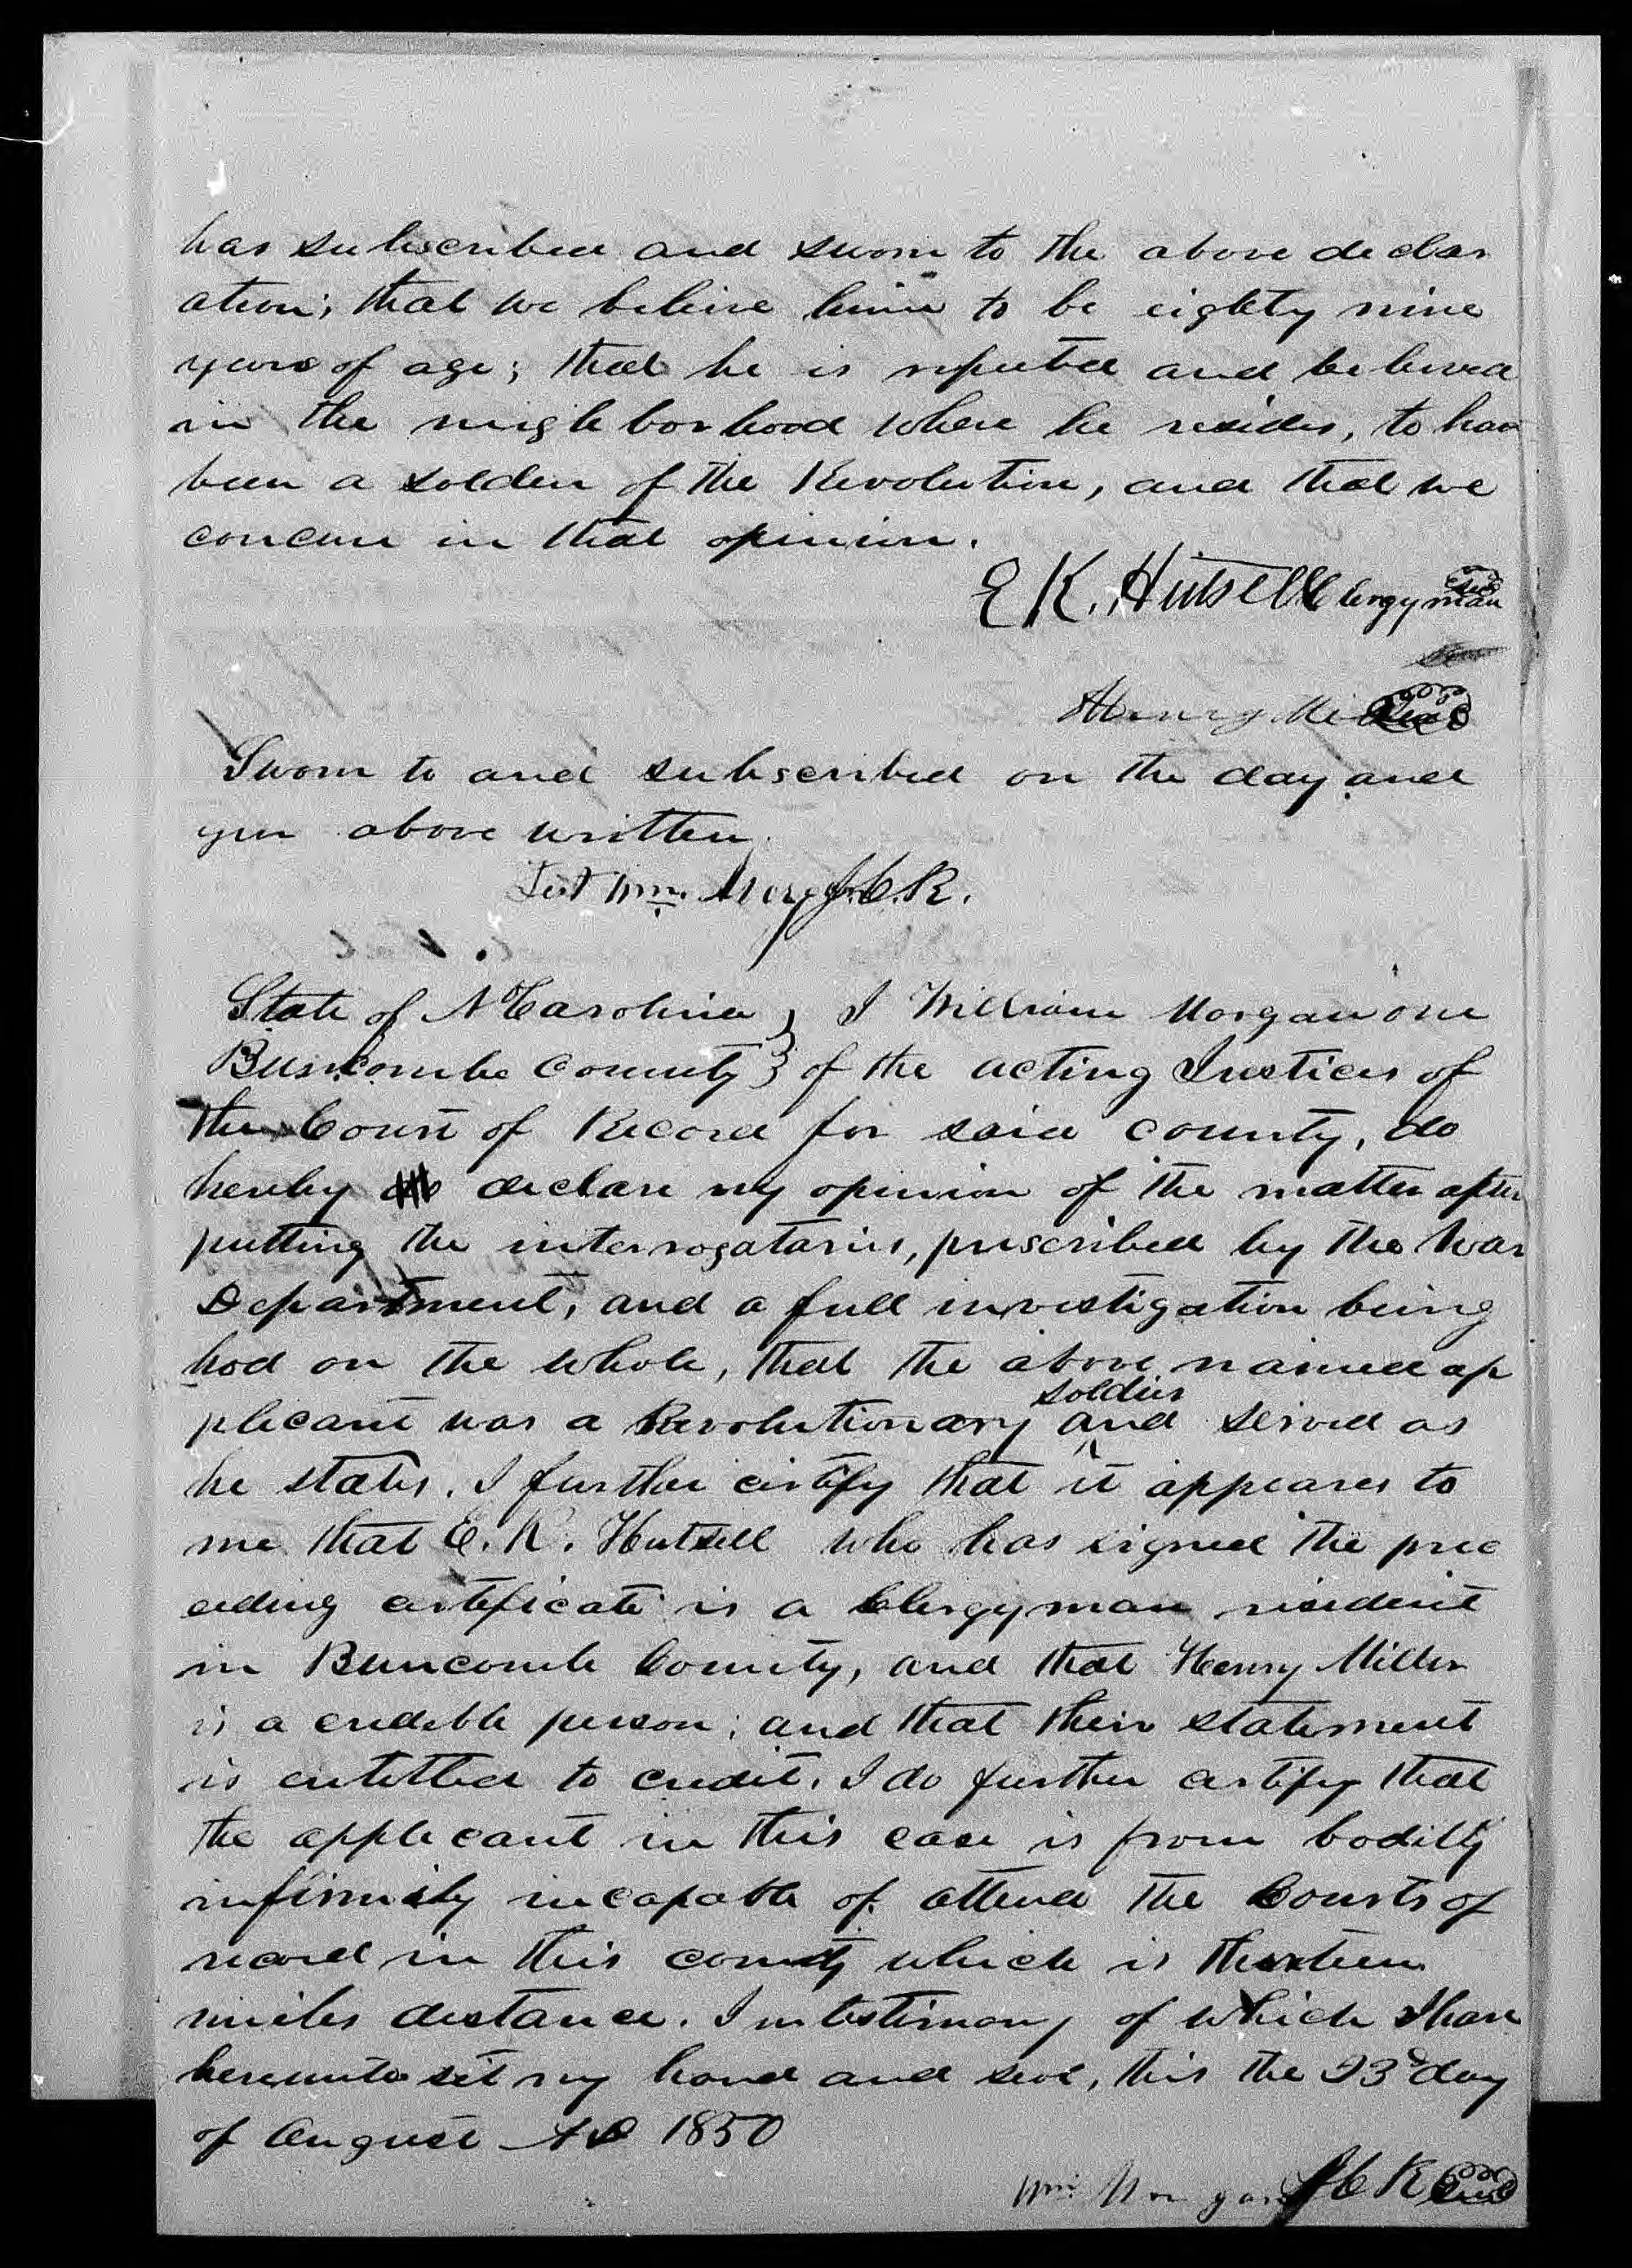 has subscribed and sworn to the above declar
ation; that we believe him to be eighty nine
years of age; that he is reputed and believed
in the neighborhood where he resides, to have
been a soldier of the Revolution, and that we
concur in that opinion.
E K. Hutsell Clergyman Seal
Henry Mi Seal
Sworn to and subscribed on the day and
year above written
Test Wm. J.C.R.
State of N Carolina } I William Morgan one
Buncombe County } of the acting Justices of
the Court of Record for said county, do
hereby declare my opinion of the matter after
putting the interrogatories, prescribed by the War
Department, and a full investigation being
had on the whole, that the above named ap
plicant was a Revolutionary soldier and served as
he states. I further certify that it appears to
me that E. K. Hutsell who has signed the prec
eding certificate is a Clergyman resident
in Buncombe County, and that Henry Miller
is a credible person; and that their statement
is entitled to credit. I do further certify that
the applicant in this case is from bodily
infirmity incapable of attend the Courts of
record in this county which is thirteen
miles distance. In testimony of which I have
hereunto set my hand and seal, this the 23d day
of August AD 1850
Wm Morgan J C R Seal